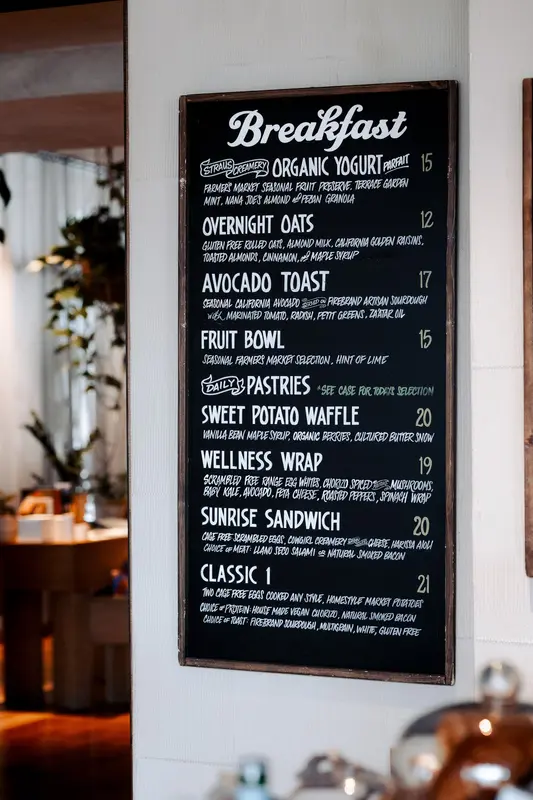 Breakfast
STRAUS CREAMERY ORGANIC YOGURT PARFAIT 15
FARMERS MARKET SEASONAL FRUIT PRESERVE, TERRACE GARDEN
MINT, NANA JOE'S ALMOND & PECAN GRANOLA
OVERNIGHT OATS 12
GLUTEN FREE ROLLED OATS, ALMOND MILK, CALIFORNIA GOLDEN RAISINS,
TOASTED ALMONDS, CINNAMON, and MAPLE SYRUP
AVOCADO TOAST 17
SEASONAL CALIFORNIA AVOCADO ON FIREBRAND ARTISAN SOURDOUGH
with MARINATED TOMATO, RADISH, PETIT GREENS, ZA'ATAR OIL
FRUIT BOWL 15
SEASONAL FARMERS MARKET SELECTION, HINT OF LIME
DAILY PASTRIES *SEE CASE FOR TODAYS SELECTION
SWEET POTATO WAFFLE 20
VANILLA BEAN MAPLE SYRUP, ORGANIC BERRIES, CULTURED BUTTER SNOW
WELLNESS WRAP 19
SCRAMBLED FREE RANGE EGG WHITES, CHORIZO SPICED MUSHROOMS,
BABY KALE, AVOCADO, FETA CHEESE, ROASTED PEPPERS, SPINACH WRAP
SUNRISE SANDWICH 20
CAGE FREE SCRAMBLED EGGS, COWGIRL CREAMERY CHEESE, HARISSA AIOLI
CHOICE of MEAT: LLANO SECO SALAMI or NATURAL SMOKED BACON
CLASSIC 1 21
TWO CAGE FREE EGGS COOKED ANY STYLE, HOMESTYLE MARKET POTATOES
CHOICE of PROTEIN: HOUSE MADE VEGAN CHORIZO, NATURAL SMOKED BACON
CHOICE of TOAST: FIREBRAND SOURDOUGH, MULTIGRAIN, WHITE, GLUTEN FREE